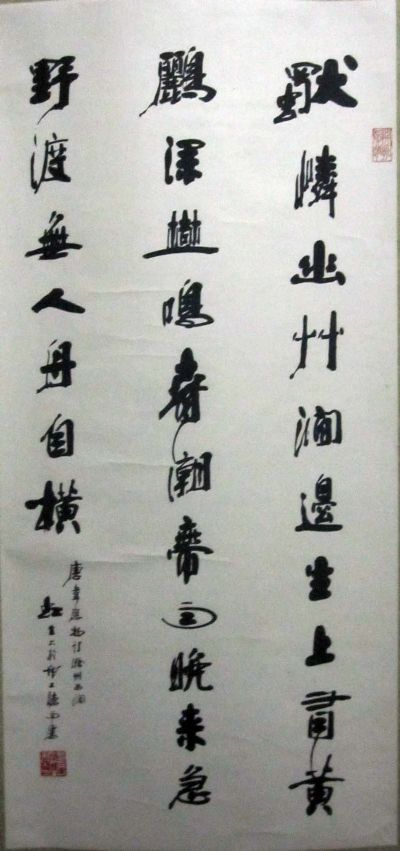 獨憐幽艸澗邊生上有黃
鸝深樹鳴春潮帶雨晚来急
野渡無人舟自橫
唐韋應物詩滁州西澗